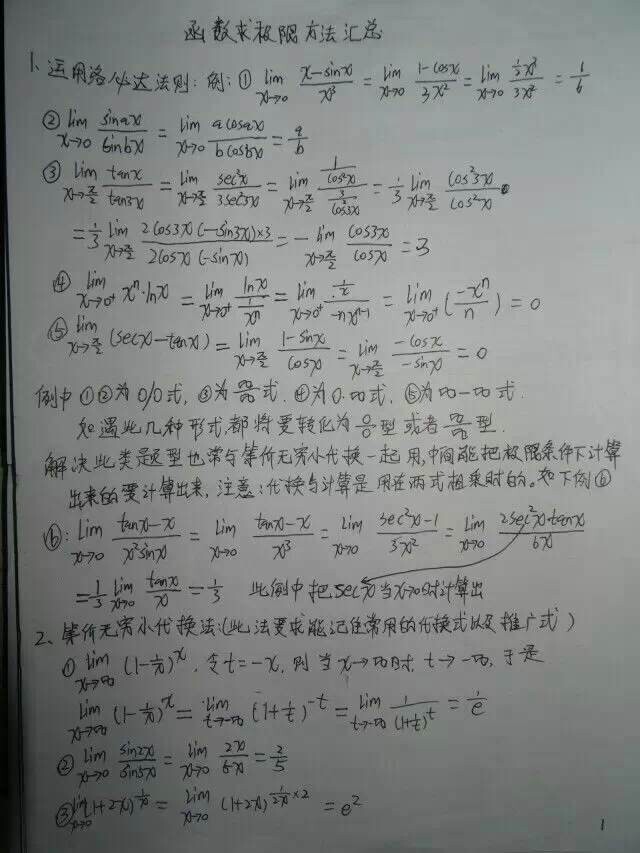 函数求极限方法汇总
1、运用洛必达法则：例：① lim_{x→0} (x−sinx)/x³ = lim_{x→0} (1−cosx)/3x² = lim_{x→0} (½x²)/3x² = 1/6
② lim_{x→0} sinax/sinbx = lim_{x→0} acosax/bcosbx = a/b
③ lim_{x→π/2} tanx/tan3x = lim_{x→π/2} sec²x/3sec²3x = lim_{x→π/2} (1/cos²x)/(3/cos²3x) = 1/3 lim_{x→π/2} cos²3x/cos²x
= 1/3 lim_{x→π/2} 2cos3x(−sin3x)×3/2cosx(−sinx) = − lim_{x→π/2} cos3x/cosx = 3
④ lim_{x→0⁺} xⁿ·lnx = lim_{x→0⁺} lnx/(1/xⁿ) = lim_{x→0⁺} (1/x)/(−nx^{n−1}) = lim_{x→0⁺} (−xⁿ/n) = 0
⑤ lim_{x→π/2} (secx−tanx) = lim_{x→π/2} (1−sinx)/cosx = lim_{x→π/2} −cosx/−sinx = 0
例中①②为0/0式，③为∞/∞式，④为0·∞式，⑤为∞−∞式.
如遇此几种形式，都将要转化为0/0型或者∞/∞型.
解决此类题型也常与等价无穷小代换一起用，中间能把极限条件下计算
出来的要计算出来，注意：代换与计算是用在两式相乘时的。如下例⑥
⑥: lim_{x→0} (tanx−x)/x²sinx = lim_{x→0} (tanx−x)/x³ = lim_{x→0} (sec²x−1)/3x² = lim_{x→0} 2sec²x·tanx/6x
= 1/3 lim_{x→0} tanx/x = 1/3 此例中把sec²x当x→0时计算出
2、等价无穷小代换法（此法要求能记住常用的代换式以及推广式）
① lim_{x→∞} (1−1/x)ˣ，令t=−x，则当x→∞时，t→−∞，于是
lim_{x→∞} (1−1/x)ˣ = lim_{t→−∞} (1+1/t)^{−t} = lim_{t→−∞} 1/(1+1/t)ᵗ = 1/e
② lim_{x→0} sin2x/sin5x = lim_{x→0} 2x/5x = 2/5
③ lim_{x→0} (1+2x)^{1/x} = lim_{x→0} (1+2x)^{1/2x×2} = e²
1